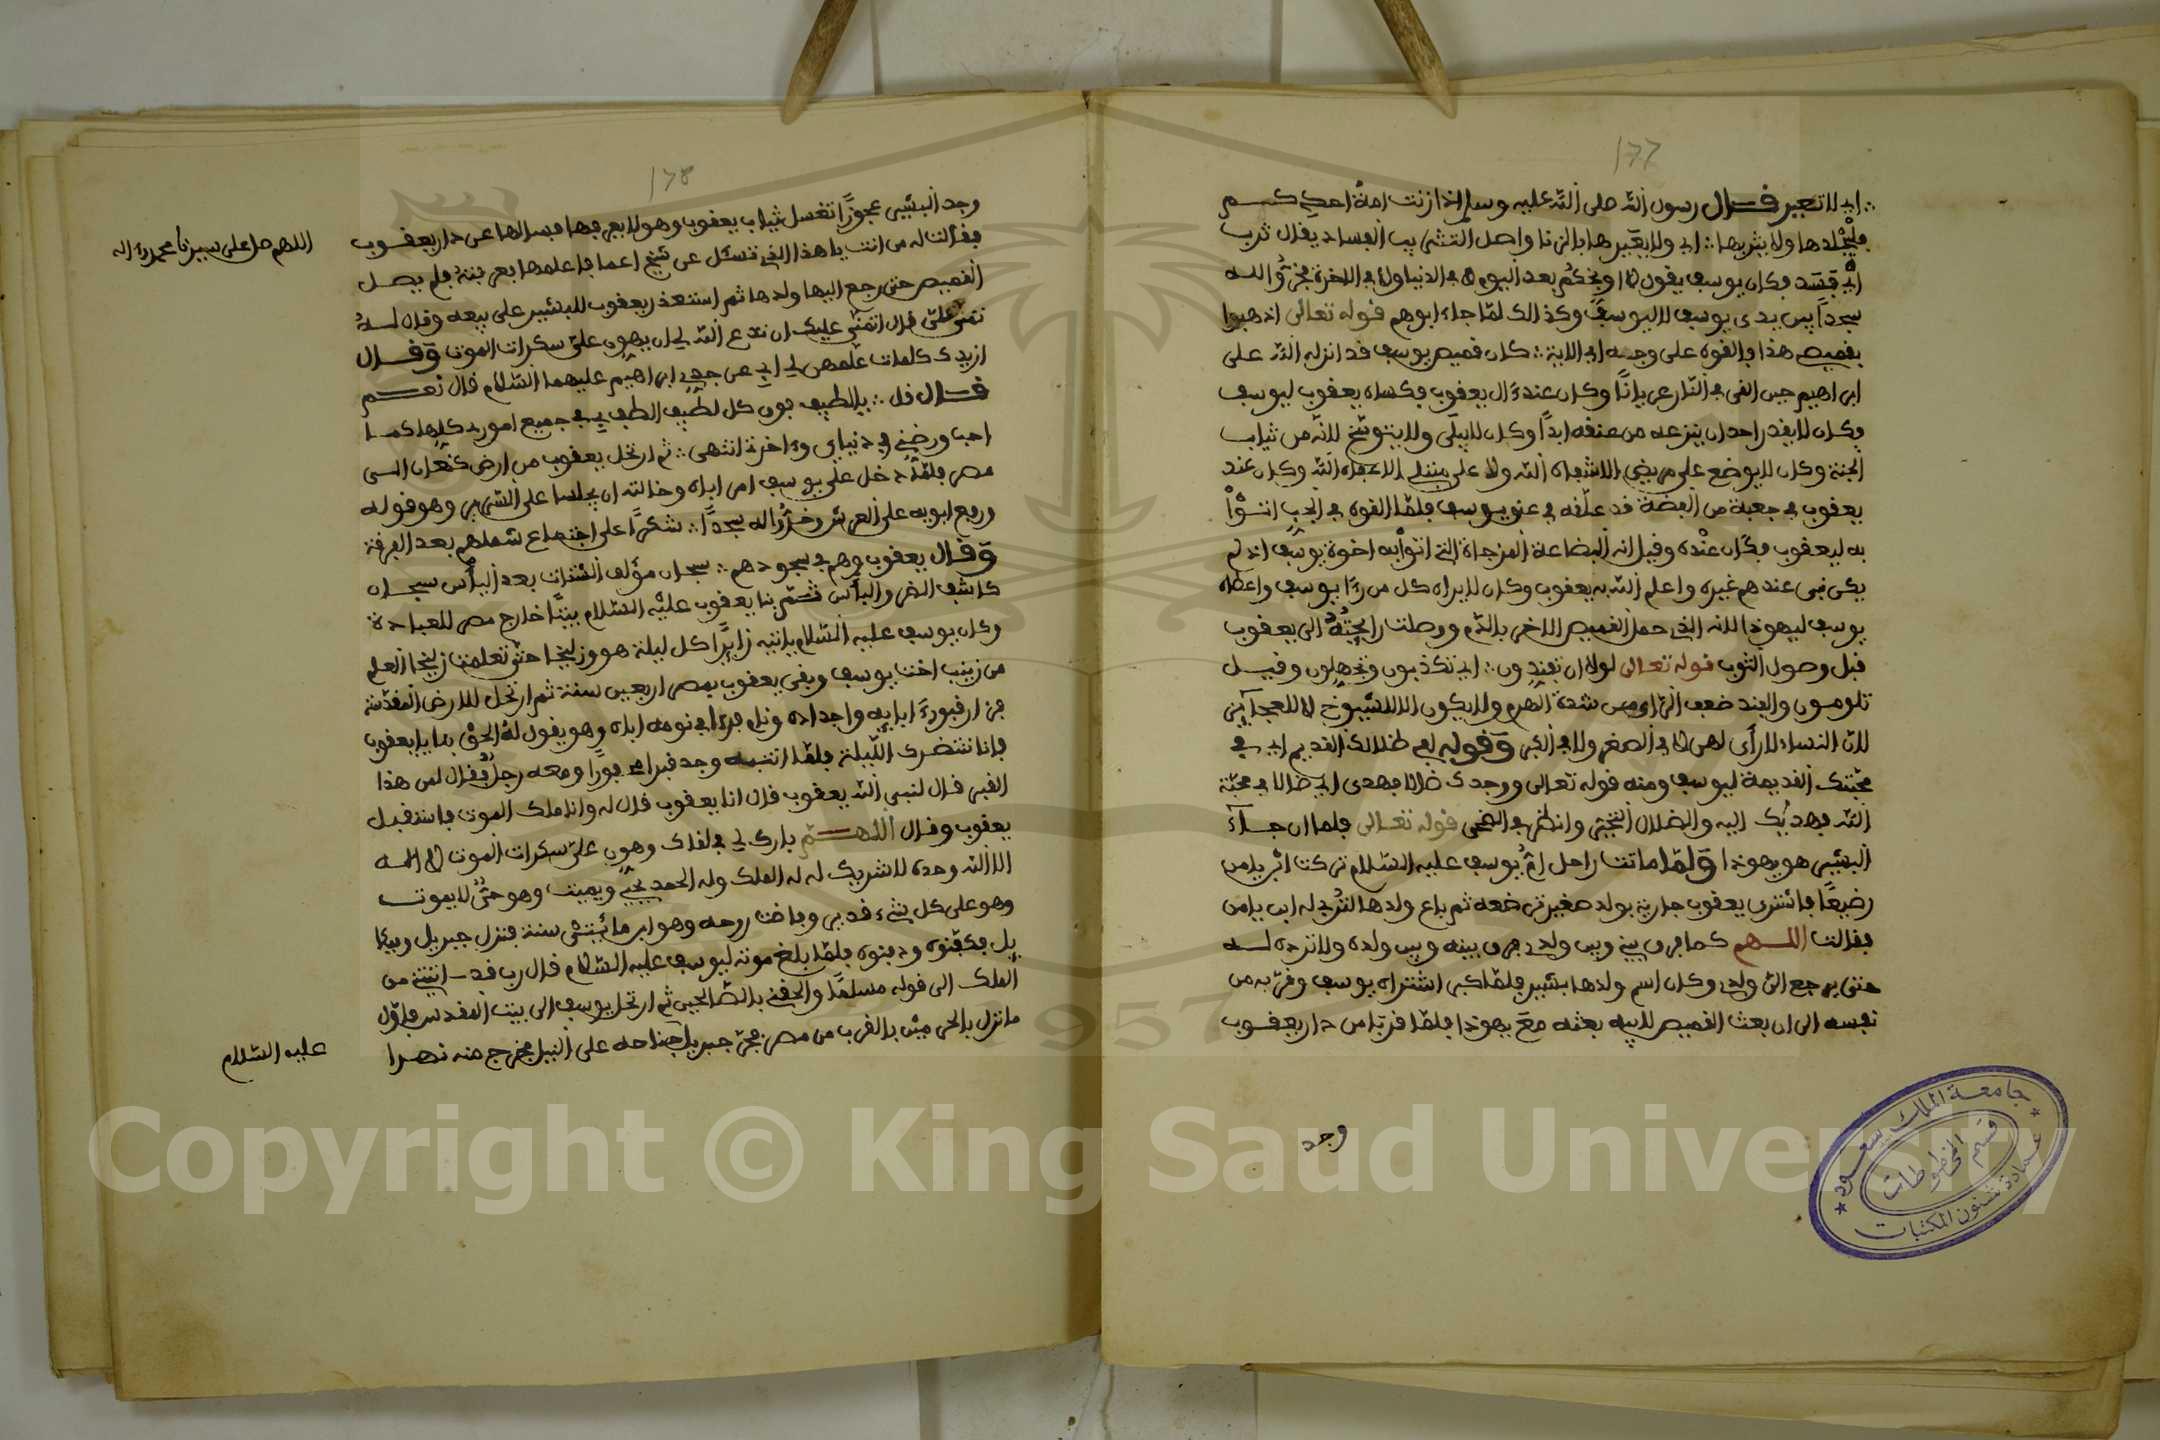 ١٧٧
∴ اي لا تعير قال رسول الله صلى الله عليه وسلم اذا زنت امة احدكم
فليجلدها ولا يثربها ∴ اي ولا يعيرها بالزنا واصل التثريب الفساد يقال ثرب
اي فسد فكان يوسف يقول لا اوبخكم بعد اليوم لا في الدنيا ولا في الاخرة فخروا له
سجدا بين يدي يوسف لا ليوسف وكذالك لما جاء ابوهم قوله تعالى اذهبوا
بقميصي هذا فالقوه على وجه ابي الاية ∴ كان قميص يوسف قد انزله الله على
ابراهيم حين القي في النار عريانا وكان عند ءال يعقوب فكساه يعقوب ليوسف
فكان لا يقدر احد ان ينزعه من عنقه ابدا وكان لا يبلى ولا يتوسخ لانه من ثياب
الجنة وكان لا يوضع على مريض الا شفاه الله ولا على مبتلى الا عافاه الله وكان عند
يعقوب في جعبة من الفضة قد علقه في عنق يوسف فلما القوه في الجب اتوا
به ليعقوب فكان عنده وقيل انه البضاعة المزجاة التي اتوا به اخوة يوسف اذ لم
يكن شي عندهم غيره واعلم الله به يعقوب وكان لا يراه كل من رءا يوسف واعطاه
يوسف ليهوذا لانه الذي حمل القميص الاخر بالدم ووصلت رايحته الى يعقوب
قبل وصول الثوب قوله تعالى لولا ان تفندون ∴ اي تكذبون وتجهلون وقيل
تلومون والفند ضعف الراي من شدة الهرم ولا يكون الا للشيوخ لا للعجايز
لان النساء لا رأى لهن لا في الصغر ولا في الكبر وقوله لفي ظلالك القديم اي في
محبتك القديمة ليوسف ومنه قوله تعالى ووجدك ضالا فهدى اي ضالا في محبة
الله فهديك اليه والضلال التحير وانظر في الضحى قوله تعالى فلما ان جاء
البشير هو يهوذا ولما ماتت راحل ام يوسف عليه السلام تركت ابن يامن
رضيعا فاشترى يعقوب جارية بولد صغير ترضعه ثم باع ولدها لترضعه ابن يامن
فقالت اللهم كما فرق بيني وبين ولدي فرق بينه وبين ولده ولا ترده له
حتى يرجع الي ولدي وكان اسم ولدها بشير فلما كبر اشتراه يوسف وقربه من
نفسه الى ان بعث القميص لابيه بعثه مع يهوذا فلما قربا من دار يعقوب
وجد
جامعة الملك سعود
قسم المخطوطات
عمادة شئون المكتبات
١٧٨
وجد البشير عجوزا تغسل ثياب يعقوب وهو لا يعرفها فسالها عن دار يعقوب
فقالت له من انت يا هذا الذي تسئل عن شيخ اعما فاعلمها بعرفته فلم يصل
القميص حتى رجع اليها ولدها ثم استعذر يعقوب للبشير على بيعه وقال له
تمنى علي قال اتمنى عليك ان تدع الله لي ان يهون علي سكرات الموت وقال
ازيدك كلمات علمهن لي ابي عن جدي ابراهيم عليهما السلام قال نعم
قال قل ∴ يا لطيف فوق كل لطيف الطف بي في جميع امورى كلها كما
احب ورضني في دنياي وءاخرة انتهى ∴ ثم ارتحل يعقوب من ارض كنعان الى
مصر فلما دخل على يوسف امر اباه وخالته ان يجلسا على السرير وهو قوله
ورفع ابويه على العرش وخروا له سجدا ∴ شكرا على اجتماع شملهم بعد الفرقة
وقال يعقوب وهم في سجودهم ∴ سبحان مؤلف الشتات بعد الياس سبحان
كاشف الضر والباس ثم بنا يعقوب عليه السلام بيتا خارج مصر للعبادة
وكان يوسف عليه السلام ياتيه زايرا كل ليلة هو وزليخا حتى تعلمت زليخا العلم
من زينب اخت يوسف وبقي يعقوب بمصر اربعين سنة ثم ارتحل للارض المقدسة
فزار قبور ءابايه واجداده ونام فرءا في نومه اباه وهو يقول له الحق بنا يا يعقوب
فانا ننتضرك الليلة فلما انتبه وجد قبرا محفورا ومعه رجل فقال لمن هذا
القبر قال لنبي الله يعقوب قال انا يعقوب قال له وانا ملك الموت فاستقبل
يعقوب وقال اللهم بارك لي في لقاك وهون علي سكرات الموت لا اله
الا الله وحده لا شريك له له الملك وله الحمد يحيي ويميت وهو حي لا يموت
وهو على كل شيء قدير وفاضت روحه وهو ابن مائتي سنة فنزل جبريل وميكا
يل فكفنوه ودفنوه فلما بلغ موته ليوسف عليه السلام قال رب قد ـ اتيتني من
الملك الى قوله مسلما والحقني بالصالحين ثم ارتحل يوسف الى بيت المقدس فاول
ما نزل بالحي مين بالقرب من مصر فجر جبريل بجناحه على النيل فخرج منه نهرا
اللهم صل على سيدنا محمد وءاله
عليه السلام
1957
Copyright © King Saud University